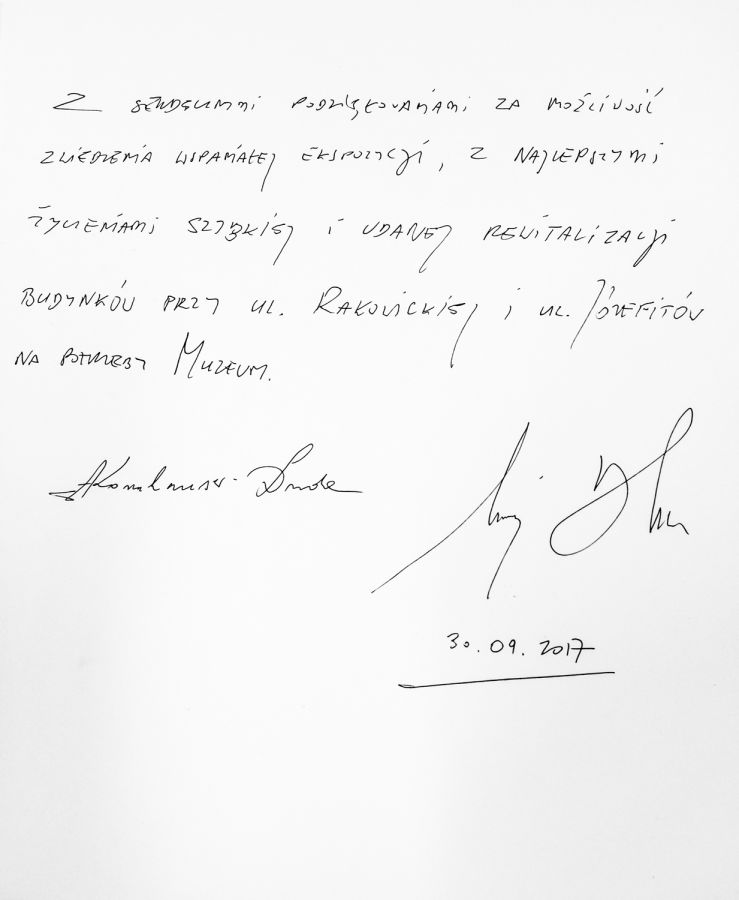 Z serdecznymi podziękowaniami za możliwość
zwiedzenia wspaniałej ekspozycji, z najlepszymi
życzeniami szybkiej i udanej rewitalizacji
budynków przy ul. Rakowickiej i ul. Józefitów
na potrzeby Muzeum.
30.09.2017